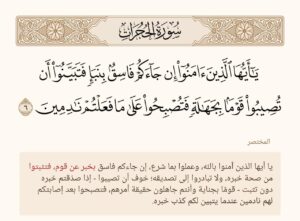 سُورَةُ الْحُجُرَاتِ
يَٰٓأَيُّهَا ٱلَّذِينَ ءَامَنُوٓا۟ إِن جَآءَكُمْ فَاسِقٌۢ بِنَبَإٍ فَتَبَيَّنُوٓا۟ أَن
تُصِيبُوا۟ قَوْمًۢا بِجَهَٰلَةٍ فَتُصْبِحُوا۟ عَلَىٰ مَا فَعَلْتُمْ نَٰدِمِينَ ٦
المختصر
يا أيها الذين آمنوا بالله، وعملوا بما شرع، إن جاءكم فاسق بخبر عن قوم، فتثبتوا
من صحة خبره، ولا تبادروا إلى تصديقه؛ خوف أن تصيبوا - إذا صدقتم خبره
دون تثبت - قومًا بجناية وأنتم جاهلون حقيقة أمرهم، فتصبحوا بعد إصابتكم
لهم نادمين عندما يتبين لكم كذب خبره.